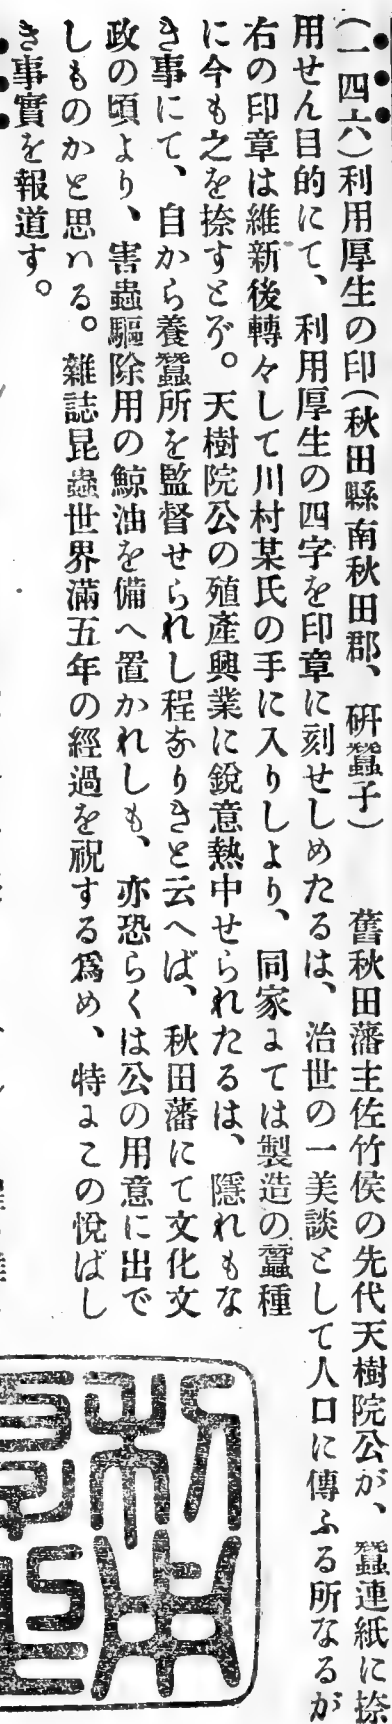 (一四六)利用厚生の印(秋田縣南秋田郡、研蠶子)　舊秋田藩主佐竹侯の先代天樹院公が、蠶連紙に捺
用せん目的にて、利用厚生の四字を印章に刻せしめたるは、治世の一美談として人口に傳ふる所なるが
右の印章は維新後轉々して川村某氏の手に入りしより、同家よては製造の蠶種
に今も之を捺すとぞ。天樹院公の殖產興業に銳意熱中せられたるは、隱れもな
き事にて、自から養蠶所を監督せられし程なりきと云へば、秋田藩にて文化文
政の頃より、害蟲驅除用の鯨油を備へ置かれしも、亦恐らくは公の用意に出で
しものかと思ハる。雜誌昆蟲世界滿五年の經過を祝する爲め、特よこの悅ばし
き事實を報道す。
利用
厚生